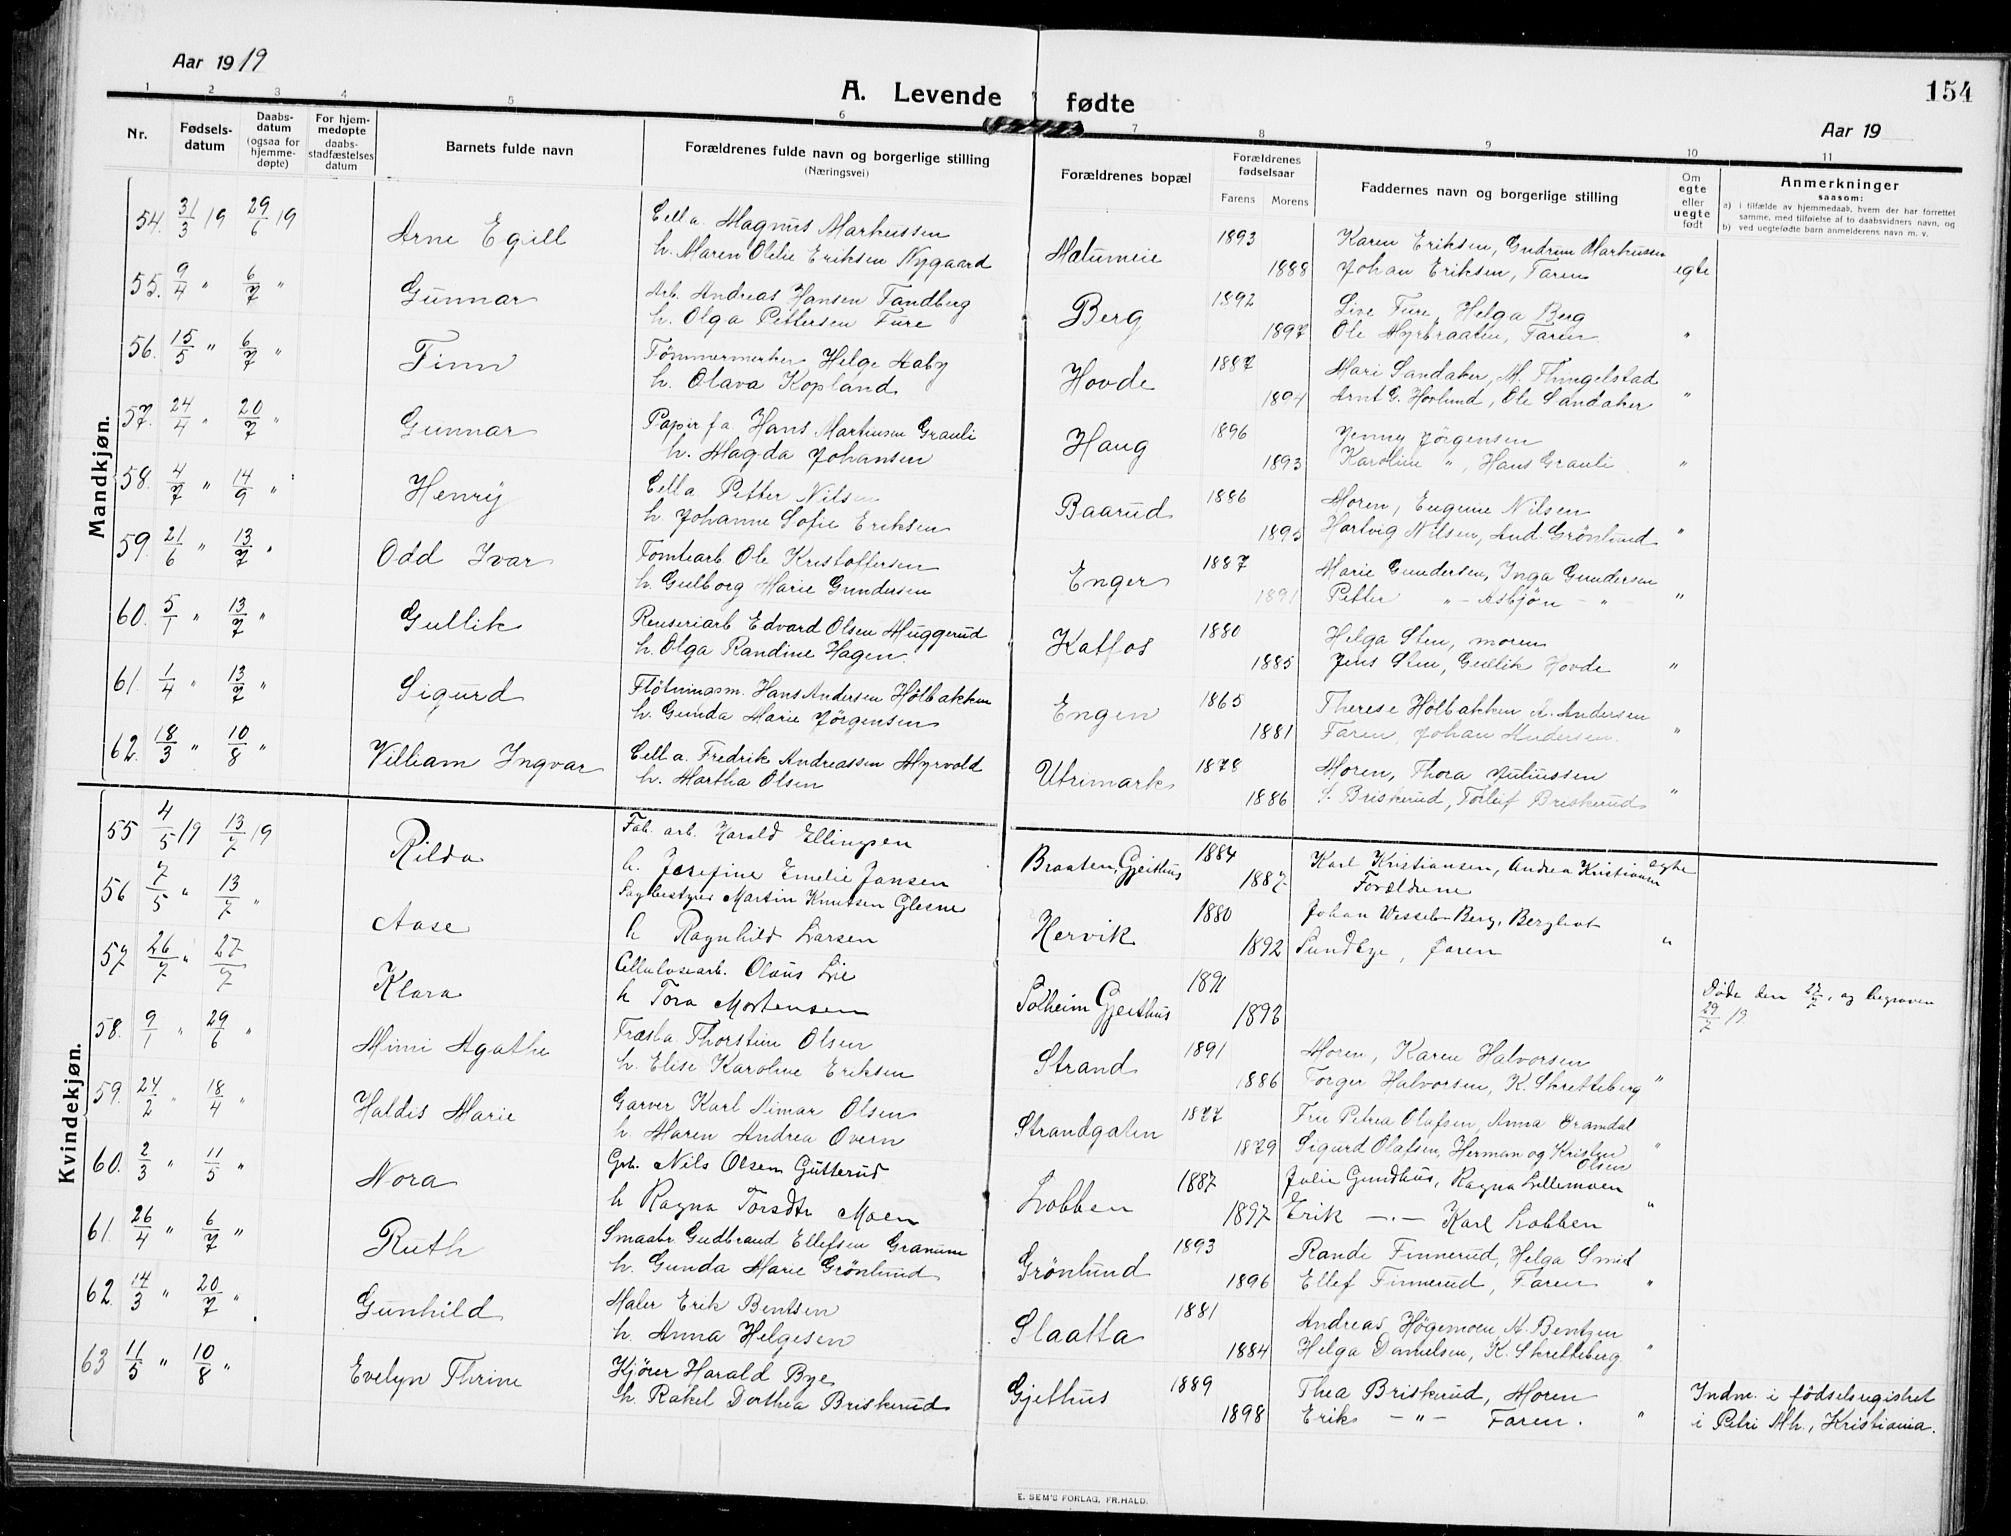 Aar 1919
A. Levende fødte
154
Aar 19
1 2 3 4 5 6 7 8 9 10 11
Nr.
Fødsels-
datum
Daabs-
datum
(ogsaa for
hjemme-
døpte)
For hjem-
medøpte
daabs-
stadfæstelses
datum
Barnets fulde navn
Forældrenes fulde navn og borgerlige stilling
(Næringsvei)
Forældrenes bopæl
Forældrenes
fødselsaar
Farens Morens
Faddernes navn og borgerlige stilling
Om
egte
eller
uegte
født
Anmerkninger
saasom:
a) i tilfælde av hjemmedaab, hvem der har forrettet
samme, med tilføielse af to daabsvidners navn, og
b) ved uegtefødte barn anmelderens navn m. v.
Mandkjøn.
54. 31/3 19 29/6 19 Arne Egill Cell a. Magnus Markussen Malumeie 1893 Karen Eriksen, Gudrun Markusen
h. Maren Olelie Eriksen Nygaard 1888 Johan Eriksen, Faren egte
55. 9/4 " 6/7 " Gunnar Arb. Andreas Hansen Tandberg Berg 1892 Live Fure, Helga Berg
h. Olga Pettersen Fure 1897 Ole Myrbraaten, Faren "
56. 15/5 " 6/7 " Finn Tömmermerker Helge Aaby Hovde 1887 Mari Sandaker, M. Thingelstad
h. Olava Kopland 1894 Arnt G. Hovlund, Ole Sandaker "
57. 24/4 " 20/7 " Gunnar Papirfa. Hans Martinsen Grauli Haug 1896 Jenny Jörgensen
h. Magda Johansen 1893 Karoline ", Hans Grauli "
58. 4/7 " 14/9 " Henry Cell a. Petter Nilsen Baarud 1886 Moren, Eugenie Nilsen
h. Johanne Sofie Eriksen 1895 Hartvig Nilsen, And. Grönlund "
59. 21/6 " 13/7 " Odd Ivar Tomtearb. Ole Kristoffersen Enger 1887 Marie Gundersen, Inga Gundersen
h. Gulborg Marie Gundersen 1891 Petter - " - Asbjön - " - "
60. 5/1 " 13/7 " Gullik Renseriarb Edvard Olsen Muggerud Katfos 1880 Helga Sten, moren
h. Olga Randine Hagen 1885 Jens Sten, Gullik Hovde "
61. 1/4 " 13/7 " Sigurd Flötningsm. Hans Andersen Hölbakken Engen 1865 Therese Hölbakken A. Andersen
h. Gunda Marie Jörgensen 1881 Faren, Johan Andersen. "
62. 18/3 " 10/8 " Villiam Ingvar Cell a. Fredrik Andreassen Myrvold Utrimark 1878 Moren, Thora Juliussen
h. Martha Olsen 1886 S. Briskerud, Torleif Briskerud "
Kvindekjøn.
55 4/5 19 13/7 19 Rilda Fab. arb. Harald Ellingsen Braaten, Gjeithus 1884 Karl Kristiansen, Andrea Kristiansen egte
h. Josefine Emelie Jansen 1887 Forældrene
56 7/5 " 13/7 " Aase Sagbestyrer Martin Knutsen Glesne Hervik 1880 Johan Wessel-Berg, Bergliot
h Ragnhild Larsen 1892 Sundbye, Faren "
57 26/7 " 27/7 Klara Cellulosearb. Olaus Lie Solheim Gjeithus 1891 Döde den 27/7, og begraven
h Tora Mortensen 1893 29/7 19.
58. 9/1 " 29/6 " Mimi Agathe Træsla. Thorstein Olsen Strand 1891 Moren, Karen Halvorsen
h. Elise Karoline Eriksen 1886 Torger Halvorsen, K. Skretteberg "
59. 24/2 " 18/4 " Haldis Marie Garver Karl Simar Olsen Strandgaten 1877 Fru Petrea Olafsen, Anna Gramdal
h. Maren Andrea Overn 1879 Sigurd Olafsen, Herman og Kristen Olsen "
60. 2/3 " 11/5 " Nora Grb. Nils Olsen Gutterud Lobben 1887 Julie Gundhus, Ragna Lillemoen
h Ragna Torsdtr Moen 1897 Erik -"- Karl Lobben "
61. 26/4 " 6/7 " Ruth Smaabr. Gudbrand Ellefsen Granum Grönlund 1893 Rande Finnerud, Helga Smid
h. Gunda Marie Grönlund 1896 Ellef Finnerud, Faren "
62. 14/3 " 20/7 " Gunhild Maler Erik Bentsen Slaatta 1881 Andreas Högemoen, A. Bentzen
h. Anna Helgesen 1884 Helga Danielsen, K. Skretteberg "
63 11/5 " 10/8 " Evelyn Thrine Kjörer Harald Bye Gjethus 1889 Thea Briskerud, Moren Indm. i födselsregistret
h. Rakel Dorthea Briskerud 1898 Erik - " - Faren. " i Petri Mh., Kristiania.
E. SEM'S FORLAG, FR.HALD.